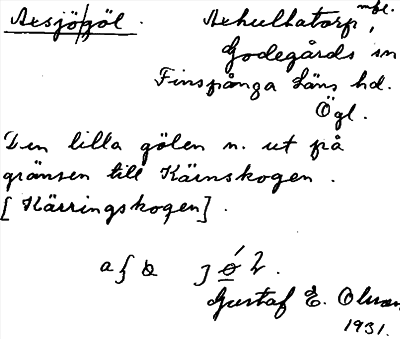 Axsjögöl. Axhultatorp, mbl.
Godegårds sn
Finspånga Läns hd.
Ögl.
Den lilla gölen n. ut på
gränsen till Kärnskogen.
[Kärringskogen].
Gustaf E. Olsson
1931.